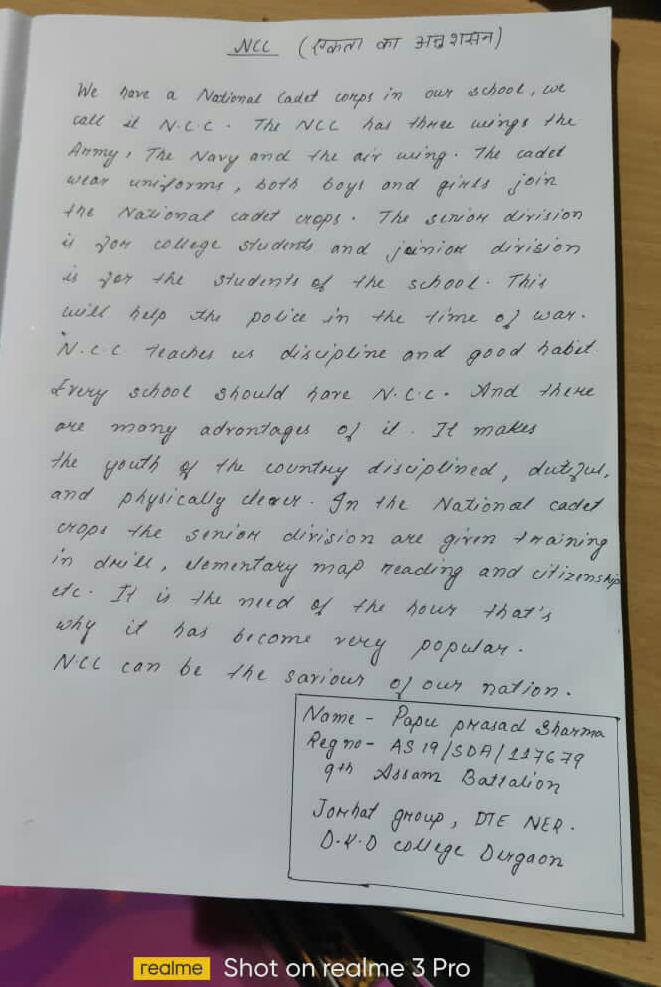 NCC (एकता का अनुशासन)
We have a National Cadet corps in our school, we
call it N.C.C. The NCC has three wings the
Army, The Navy and the air wing. The cadet
wear uniforms, both boys and girls join
the National cadet crops. The senior division
is for college students and juinior division
is for the students of the school. This
will help the police in the time of war.
N.C.C teaches us discipline and good habit.
Every school should have N.C.C. And there
are many advantages of it. It makes
the youth of the country disciplined, dutiful,
and physically clever. In the National cadet
crops the senior division are given training
in drill, elementary map reading and citizenship
etc. It is the need of the hour that's
why it has become very popular.
NCC can be the saviour of our nation.
Name - Papu prasad Sharma
Reg no - AS19/SDA/117679
9th Assam Battalion
Jorhat group, DTE NER.
D.K.D college Dergaon
realme Shot on realme 3 Pro